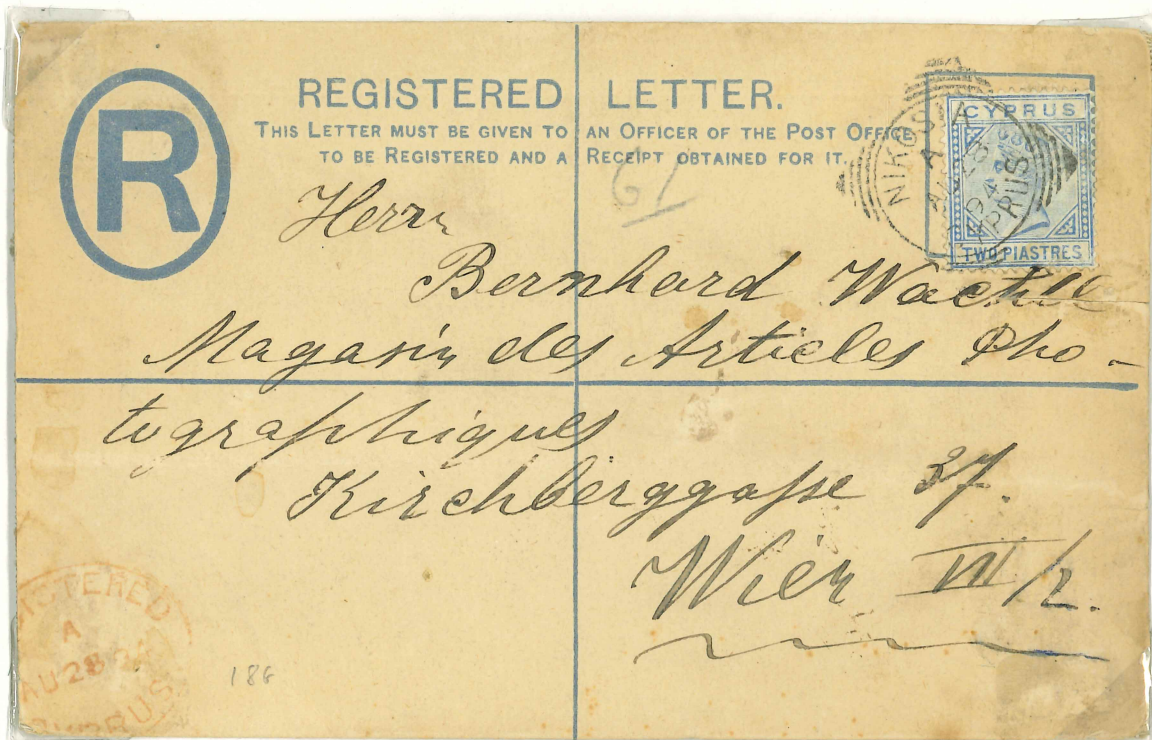 R
REGISTERED LETTER.
THIS LETTER MUST BE GIVEN TO AN OFFICER OF THE POST OFFICE
TO BE REGISTERED AND A RECEIPT OBTAINED FOR IT.
NIKOSIA
A
AU 28
94
CYPRUS
CYPRUS
TWO PIASTRES
61
Herrn
Bernhard
Magasin des Articles Pho-
tographiques
Kirchberggasse 37.
Wien VII/2.
REGISTERED
A
AU 28 94
CYPRUS
186